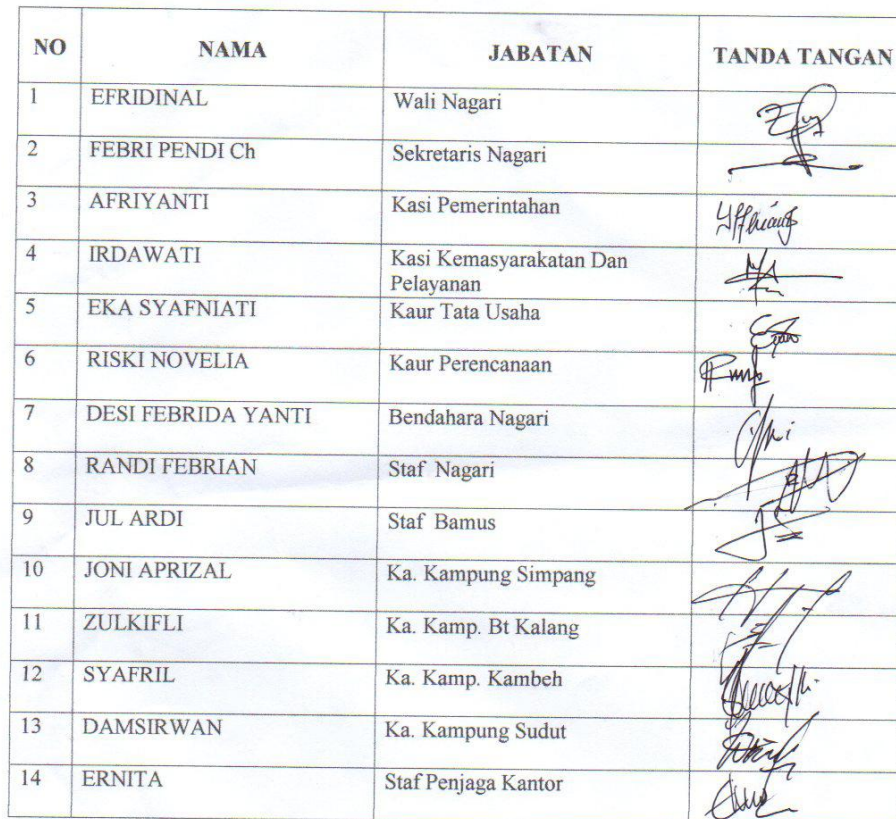 NO NAMA JABATAN TANDA TANGAN
1 EFRIDINAL Wali Nagari
2 FEBRI PENDI Ch Sekretaris Nagari
3 AFRIYANTI Kasi Pemerintahan
4 IRDAWATI Kasi Kemasyarakatan Dan
Pelayanan
5 EKA SYAFNIATI Kaur Tata Usaha
6 RISKI NOVELIA Kaur Perencanaan
7 DESI FEBRIDA YANTI Bendahara Nagari
8 RANDI FEBRIAN Staf Nagari
9 JUL ARDI Staf Bamus
10 JONI APRIZAL Ka. Kampung Simpang
11 ZULKIFLI Ka. Kamp. Bt Kalang
12 SYAFRIL Ka. Kamp. Kambeh
13 DAMSIRWAN Ka. Kampung Sudut
14 ERNITA Staf Penjaga Kantor